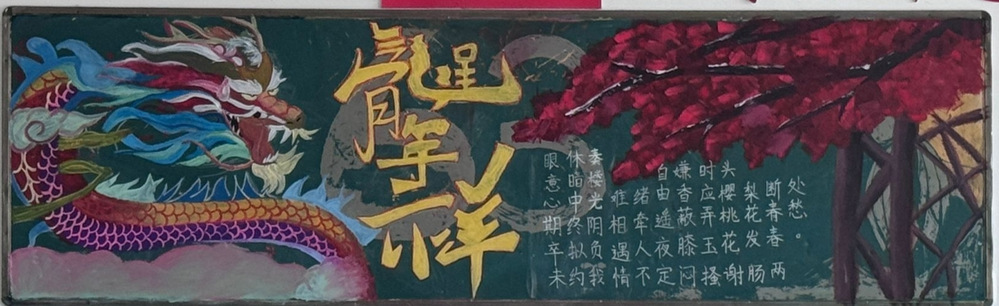 龍年
呈祥
眼意心期卒未
休暗中终拟约
秦楼光阴负我
难相遇情
绪牵人不
自由遥夜定
嫌香蔽膝闷
时应弄玉搔
头樱桃花谢
梨花发肠
断春春两
处愁。